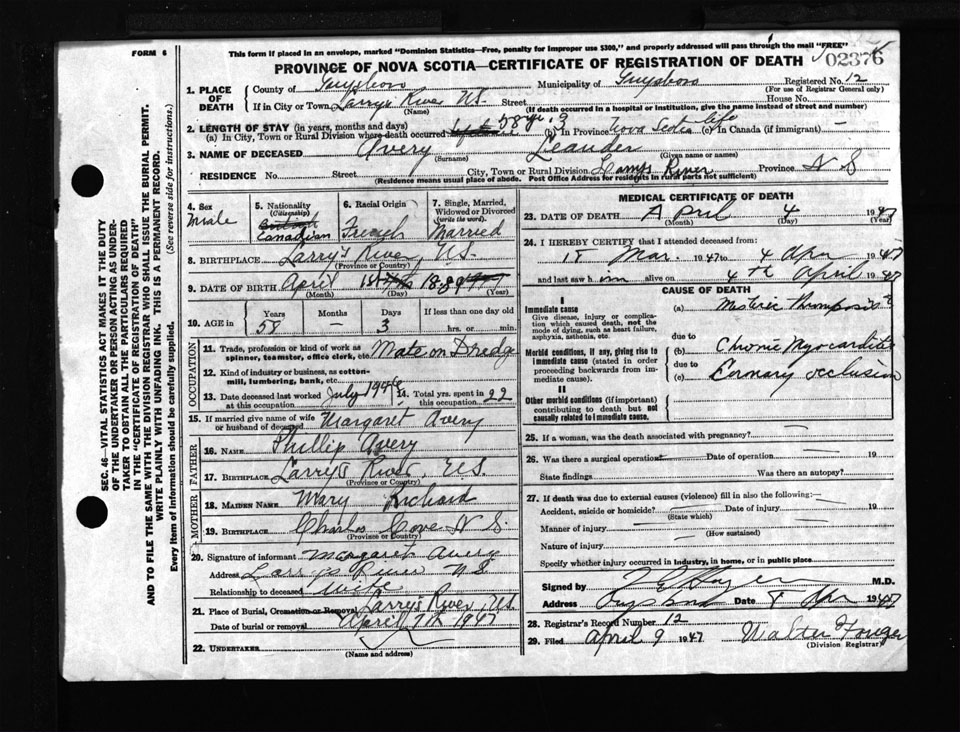 FORM 6
This form if placed in an envelope, marked "Dominion Statistics—Free, penalty for improper use $300," and properly addressed will pass through the mail "FREE"
PROVINCE OF NOVA SCOTIA—CERTIFICATE OF REGISTRATION OF DEATH
02376
1. PLACE OF DEATH
County of Guysboro Municipality of Guysboro Registered No. 12
(For use of Registrar General only)
If in City or Town Larrys River NS. Street House No.
(Name) (If death occurred in a hospital or institution, give the name instead of street and number)
2. LENGTH OF STAY (in years, months and days)
(a) In City, Town or Rural Division where death occurred 58 yr. 3 (b) In Province Nova Scotia life (c) In Canada (if immigrant) —
3. NAME OF DECEASED Avery Leander
(Surname) (Given name or names)
RESIDENCE No. Street City, Town or Rural Division Larrys River Province N S
(Residence means usual place of abode. Post Office Address for residents in rural parts not sufficient)
4. Sex Male
5. Nationality (Citizenship) British Canadian
6. Racial Origin French
7. Single, Married, Widowed or Divorced (write the word) Married
8. BIRTHPLACE Larry's River, N.S.
(Province or Country)
9. DATE OF BIRTH April 1st 1889
(Month) (Day) (Year)
10. AGE in Years Months Days If less than one day old
58 — 3 hrs. or min.
OCCUPATION
11. Trade, profession or kind of work as spinner, teamster, office clerk, etc. Mate on Dredge
12. Kind of industry or business, as cotton-mill, lumbering, bank, etc.
13. Date deceased last worked at this occupation July 1946 14. Total yrs. spent in this occupation 22
15. If married give name of wife or husband of deceased Margaret Avery
FATHER
16. NAME Phillip Avery
17. BIRTHPLACE Larry's River, N.S.
(Province or Country)
MOTHER
18. MAIDEN NAME Mary Richard
19. BIRTHPLACE Charlos Cove N.S.
(Province or Country)
20. Signature of informant Margaret Avery
Address Larrys River NS
Relationship to deceased Wife
21. Place of Burial, Cremation or Removal Larry's River, N.S.
Date of burial or removal April 7th 1947
22. UNDERTAKER
(Name and address)
MEDICAL CERTIFICATE OF DEATH
23. DATE OF DEATH April 4 1947
(Month) (Day) (Year)
24. I HEREBY CERTIFY that I attended deceased from:
Mar. 1947 to 4 Apr 1947
and last saw him alive on 4th April 1947
CAUSE OF DEATH
I
Immediate cause
Give disease, injury or complication which caused death, not the mode of dying, such as heart failure, asphyxia, asthenia, etc.
(a)
due to
Morbid conditions, if any, giving rise to immediate cause (stated in order proceeding backwards from immediate cause).
(b) Chronic Myocarditis
due to
(c) Coronary occlusion
II
Other morbid conditions (if important) contributing to death but not causally related to immediate cause.
25. If a woman, was the death associated with pregnancy?
26. Was there a surgical operation Date of operation 19
State findings Was there an autopsy?
27. If death was due to external causes (violence) fill in also the following:
Accident, suicide or homicide? Date of injury 19
(State which)
Manner of injury
(How sustained)
Nature of injury
Specify whether injury occurred in industry, in home, or in public place
Signed by M.D.
Address Guysboro Date 8 Apr 1947
28. Registrar's Record Number 12
29. Filed April 9 1947 Walter
(Division Registrar)
SEC. 46—VITAL STATISTICS ACT MAKES IT THE DUTY OF THE UNDERTAKER OR PERSON ACTING AS UNDERTAKER TO OBTAIN ALL THE PARTICULARS REQUIRED IN THE "CERTIFICATE OF REGISTRATION OF DEATH" AND TO FILE THE SAME WITH THE DIVISION REGISTRAR WHO SHALL ISSUE THE BURIAL PERMIT.
WRITE PLAINLY WITH UNFADING INK. THIS IS A PERMANENT RECORD.
Every item of information should be carefully supplied. (See reverse side for instructions.)